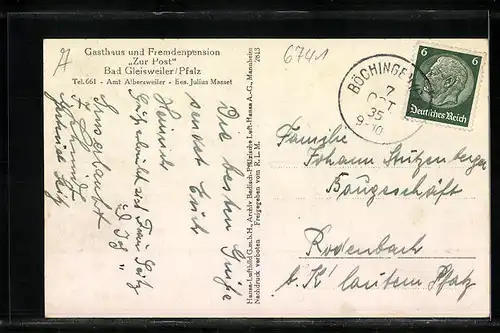 Gasthaus und Fremdenpension
„Zur Post"
Bad Gleisweiler/Pfalz
Tel. 661 - Amt Albersweiler - Bes. Julius Masset
Die besten Grüße
sendet Euch
Heinrich
Hansa-Luftbild G.m.b.H, Archiv Badisch-Pfälzische Luft-Hansa A.-G., Mannheim
Nachdruck verboten Freigegeben vom R.L.M.
2813
6741
BÖCHINGEN
7
OCT
35
9-10
6 6
Deutsches Reich
Familie
Johann Stützenberger
Baugeschäft
Rodenbach
b. K'lautern Pfalz